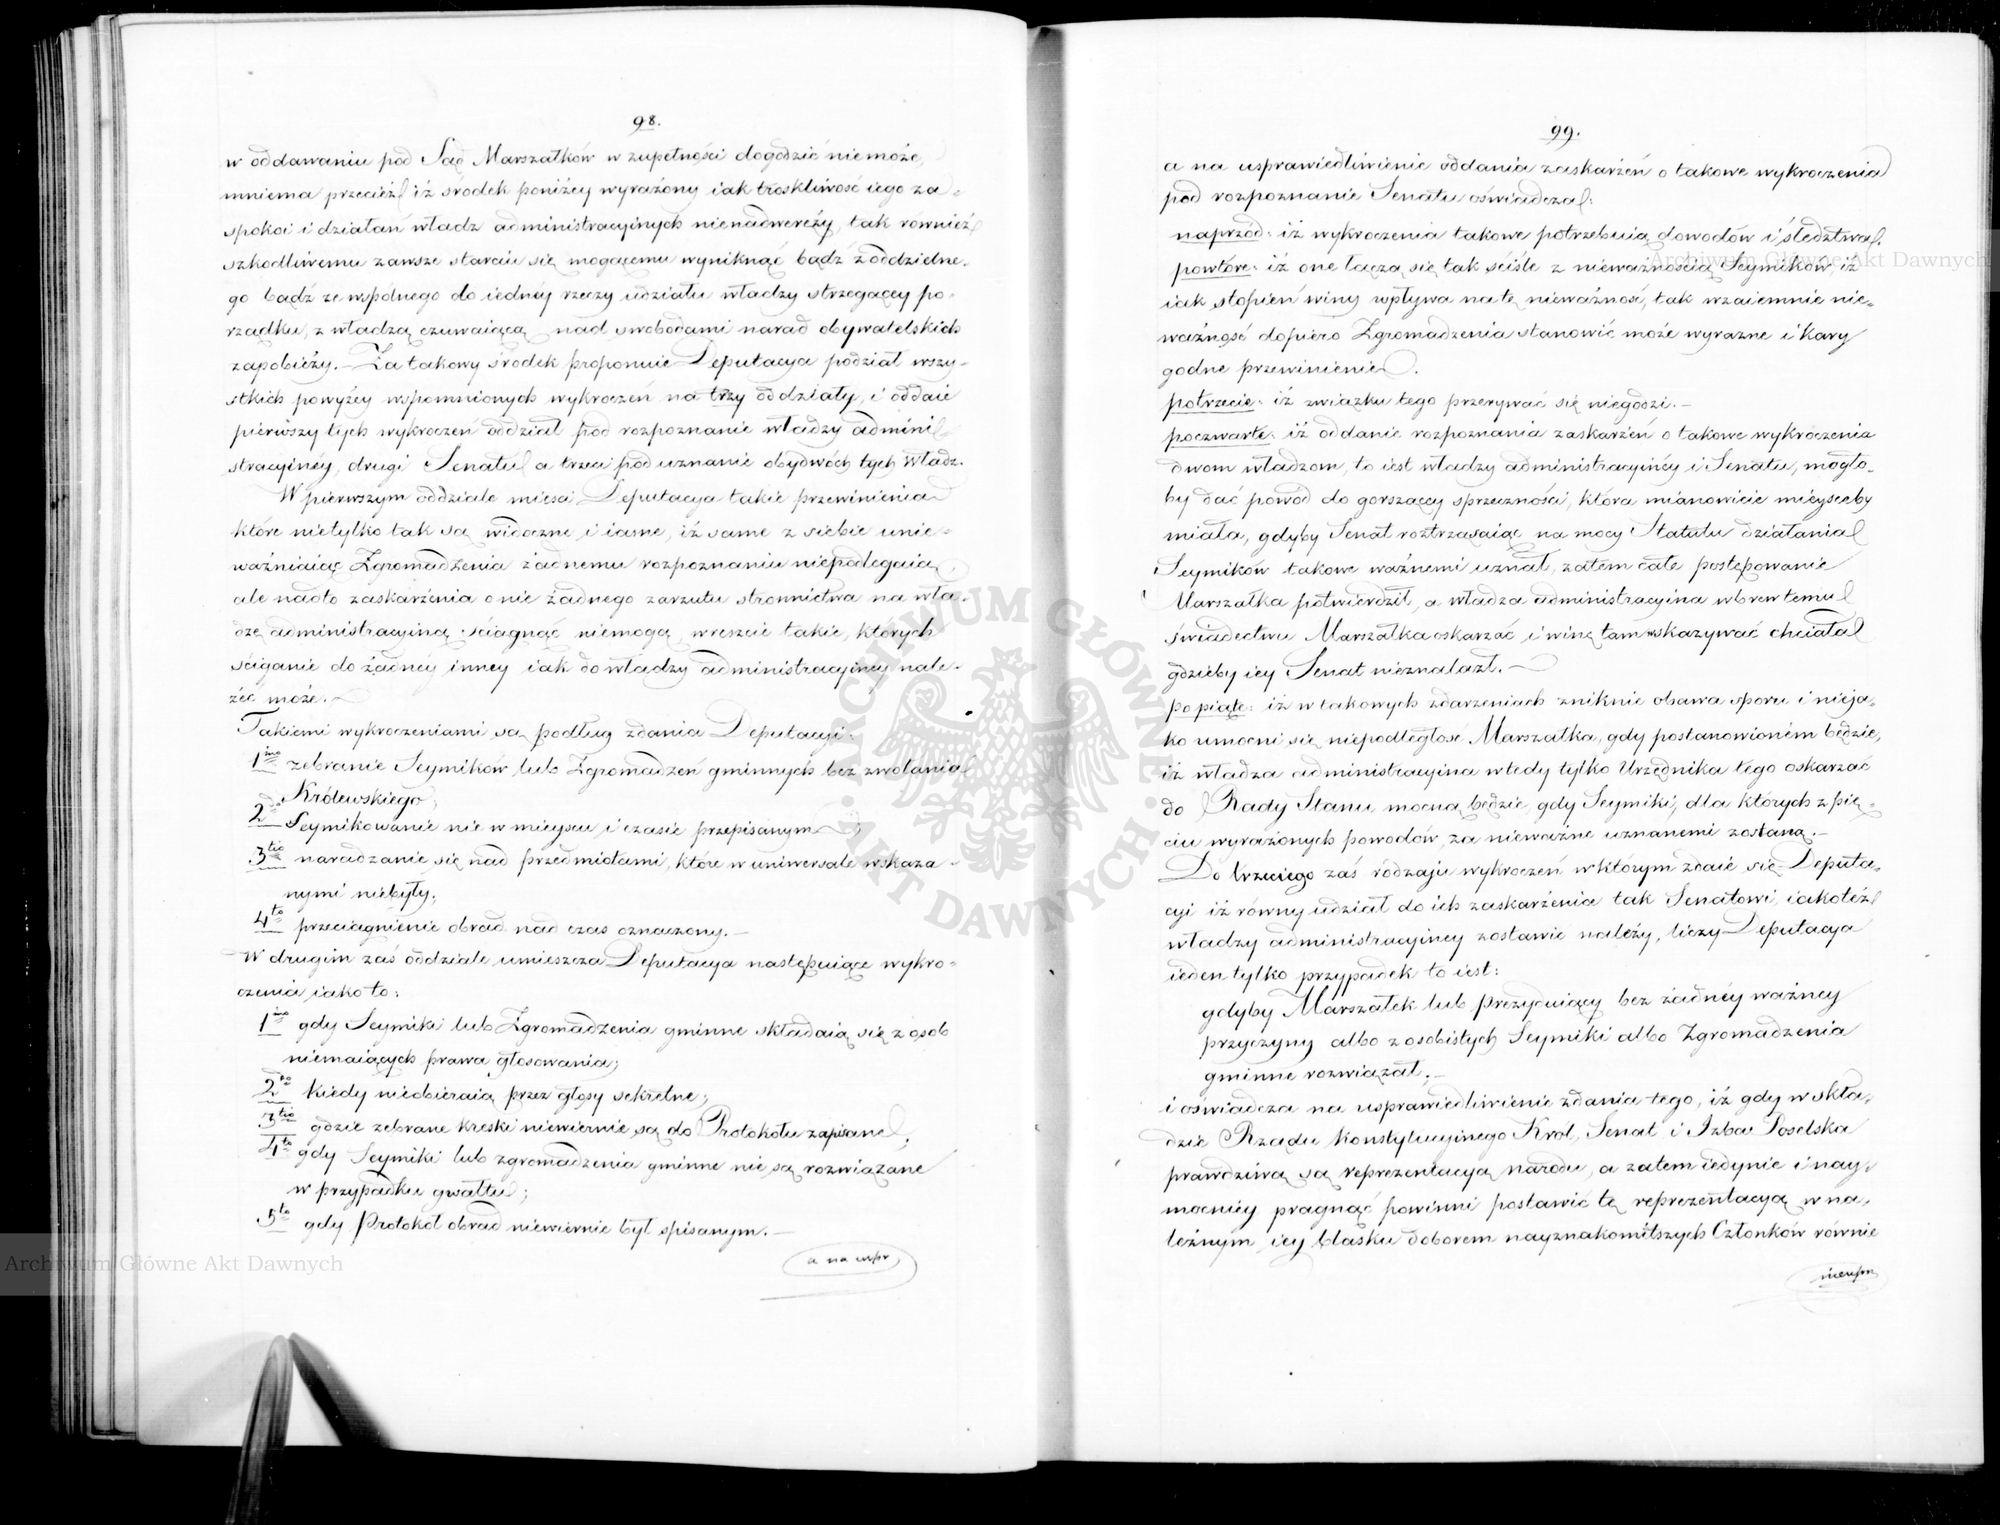 98.
w oddawaniu pod Sąd Marszałków w zupełności dogodzić niemoże,
mniema przecież iż srodek poniżey wyrażony iak troskliwość iego za-
spokoi i działań władz administracyinych nienadweręży, tak również
szkodliwemu zawsze starciu się mogącemu wyniknąć bądz z oddzielne-
go bądź ze wspolnego do iednéy rzeczy udziału władzy strzegącey po-
rządku, z władzą czuwaiącą nad swobodami narad obywatelskich
zapobieży. - Za takowy środek proponuie Deputacya podział wszy-
stkich powyżéy wspomnionych wykroczeń na trzy oddziały, i oddaie
pierwszy tych wykroczeń oddział pod rozpoznanie władzy admini-
stracyinéy, drugi Senatu a trzeci pod uznanie obydwóch tych władz.
W pierwszym oddziale mieści Deputacya takie przewinienia
które nietylko tak są widoczne i iasne, iż same z siebie unie-
ważniaiąc Zgromadzenia żadnemu rozpoznaniu niepodlegaią,
ale nadto zaskarżenia o nie żadnego zarzutu stronnictwa na wła-
dzę administracyiną ściągnąć niemogą, wreszcie takie, których
ściganie do żadnéy inney iak do władzy administracyiney nale-
żéc może. -
Takiemi wykroczeniami są podług zdania Deputacyi:
1mo zebranie Seymików lub Zgromadzeń gminnych bez zwołania
Królewskiego;
2do Seymikowanie nie w mieyscu i czasie przepisanym;
3tio naradzanie się nad przedmiotami, które w uniwersale wskaza-
nymi niebyły;
4to przeciągnienie obrad nad czas oznaczony. -
W drugim zaś oddziale umieszcza Deputacya następuiące wykro-
czenia iako to:
1mo gdy Seymiki lub Zgromadzenia gminne składaią się z osob
niemaiących prawa głosowania;
2do kiedy nieobieraią przez głosy sekretne;
3tio gdzie zebrane kreski niewiernie są do Protokołu zapisane;
4to gdy Seymiki lub zgromadzenia gminne nie są rozwiązane
w przypadku gwałtu;
5to gdy Protokół obrad niewiernie był spisanym. -
a na uspr
99.
a na usprawiedliwienie oddania zaskarżeń o takowe wykroczenia
pod rozpoznanie Senatu oświadcza:
naprzód: iż wykroczenia takowe potrzebuią dowodów i śledztwa.
powtóre: iż one łączą się tak ściśle z nieważnością Seymików, iż
iak stopień winy wpływa na tę nieważność, tak wzaiemnie nie-
ważność dopiero Zgromadzenia stanowić może wyrazne i kary
godne przewinienie.
potrzecie: iż związku tego przerywać się niegodzi. -
poczwarte: iż oddanie rozpoznania zaskarżeń o takowe wykroczenia
dwom władzom, to iest władzy administracyinéy i Senatu, mogło-
by dać powód do gorszącey sprzeczności, która mianowicie mieysceby
miała, gdyby Senat roztrząsaiąc na mocy Statutu działania
Seymików takowe ważnemi uznał, zatem całe postępowanie
Marszałka potwierdził, a władza administracyina wbrew temu
świadectwu Marszałka oskarzać i winę tam wskazywać chciała
gdzieby iey Senat nieznalazł. -
popiąte: iż w takowych zdarzeniach zniknie obawa sporu i nieja-
ko umocni się niepodległosc Marszałka, gdy postanowioném będzie,
iż władza administracyina wtedy tylko Urzędnika tego oskarzać
do Rady Stanu mocną będzie, gdy Seymiki, dla których z pię-
ciu wyrażonych powodów za nieważne uznanemi zostaną. -
Do trzeciego zaś rodzaju wykroczeń w którym zdaie się Deputa-
cyi iż równy udział do ich zaskarżenia tak Senatowi iakoteż
władzy administracyiney zostawić należy, liczy Deputacya
ieden tylko przypadek to iest:
gdyby Marszałek lub Prezyduiący bez żadnéy ważney
przyczyny albo z osobistych Seymiki albo Zgromadzenia
gminne rozwiązał; -
i oświadcza na usprawiedliwienie zdania tego, iż gdy w skła-
dzie Rządu Konstytucyinego Król, Senat i Izba Poselska
prawdziwą są reprezentacyą narodu, a zatem iedynie i nay-
mocniéy pragnąć powinni postawić tę reprezentacyą w na-
leżnym iey blasku doborem nayznakomitszych Członków równie
Archiwum Główne Akt Dawnych
ARCHIWUM GŁÓWNE AKT DAWNYCH
Archiwum Główne Akt Dawnych